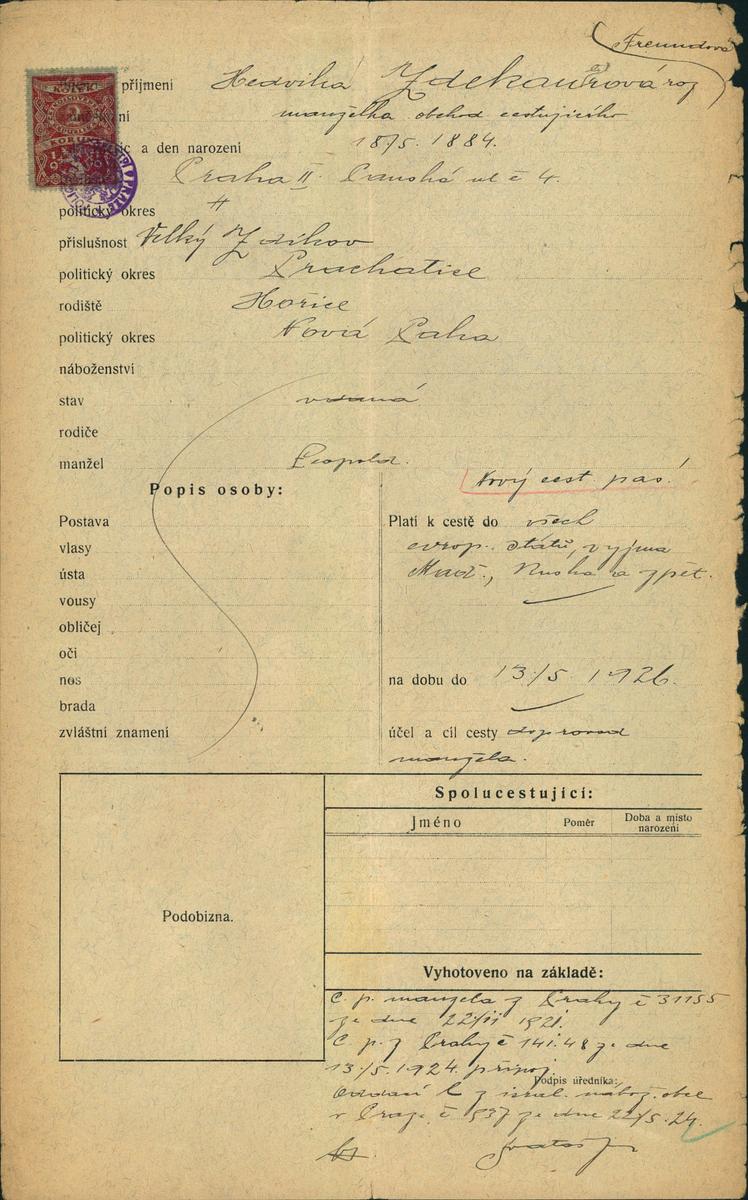 Freundová
příjmení Hedvika Zdekauerová roz
manželka obchod cestujícího
a den narození 18/5. 1884.
Praha II. Panská ul č 4.
politický okres "
příslušnost Velký Zdikov
politický okres Prachatice
rodiště Hořice
politický okres Nová Paka
náboženství
stav vdaná
rodiče
manžel Leopold.
Popis osoby:
Nový cest pas!
Postava
vlasy
ústa
vousy
obličej
oči
nos
brada
zvláštní znamení
Platí k cestě do všech
evrop. států, vyjma
Maď., Ruska a zpět.
na dobu do 13./5. 1926.
účel a cíl cesty doprovod
manžela.
Podobizna.
Spolucestující:
Jméno
Poměr
Doba a místo
narození
Vyhotoveno na základě:
C. p. manžela z Prahy č 31155
ze dne 22/II 1921.
C. p. z Prahy č 141.48 ze dne
13./5. 1924. připoj.
Podpis úředníka:
Oddací l. z israel. nábož. obce
v Praze č 537 ze dne 22/5. 24.